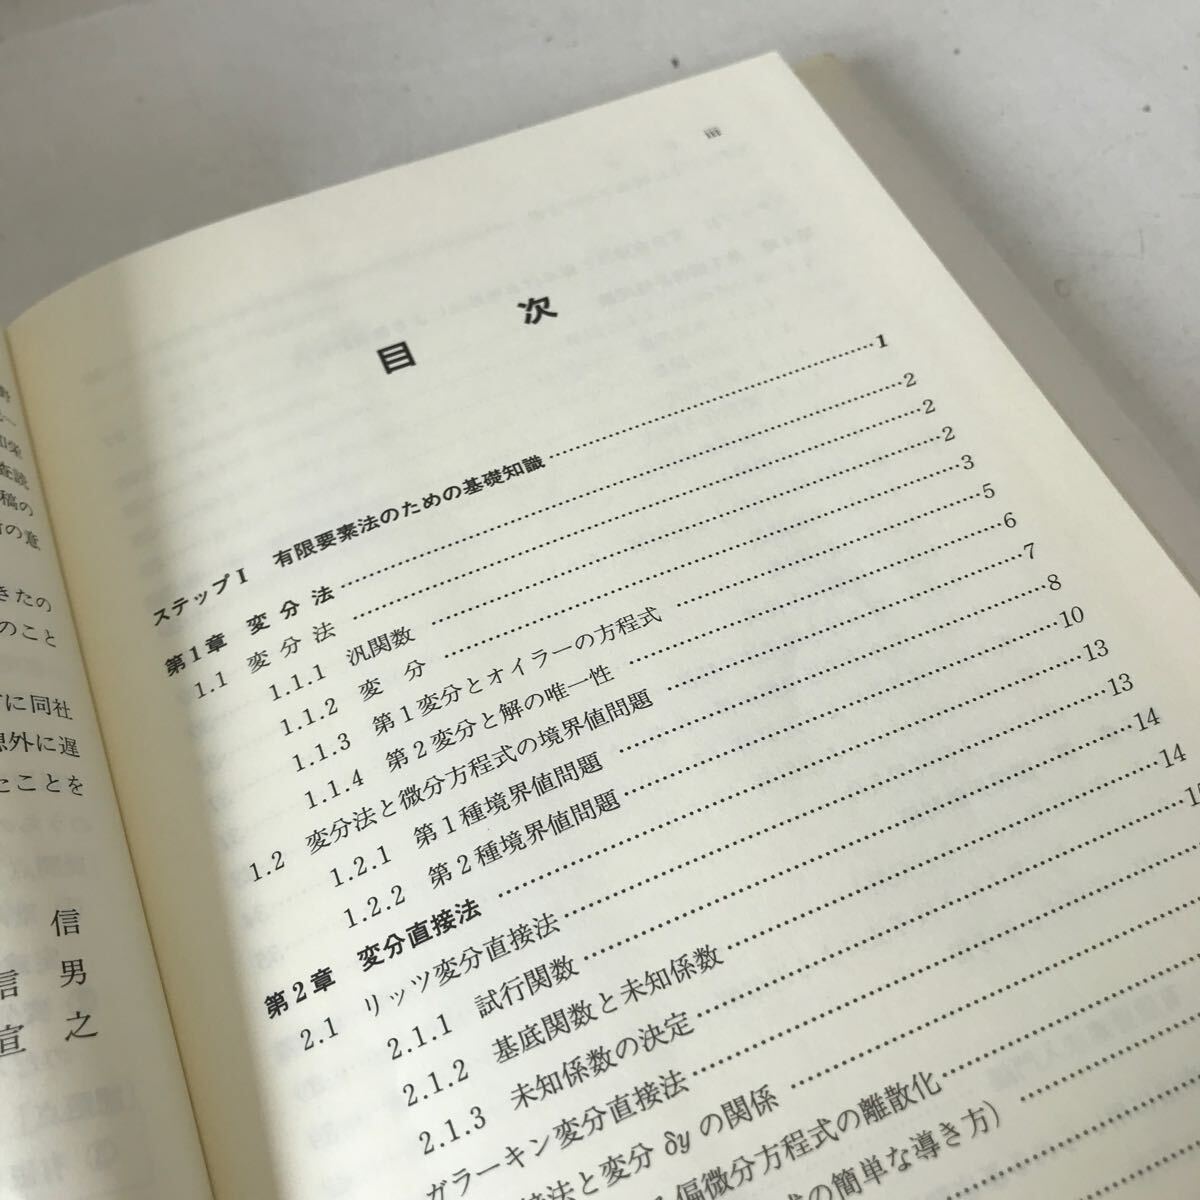 iii
目次
ステップI 有限要素法のための基礎知識……1
第1章 変分法……2
1.1 変分法……2
1.1.1 汎関数……2
1.1.2 変分……3
1.1.3 第1変分とオイラーの方程式……5
1.1.4 第2変分と解の唯一性……6
1.2 変分法と微分方程式の境界値問題……7
1.2.1 第1種境界値問題……8
1.2.2 第2種境界値問題……10
第2章 変分直接法……13
2.1 リッツ変分直接法……13
2.1.1 試行関数……14
2.1.2 基底関数と未知係数……14
2.1.3 未知係数の決定……
ガラーキン変分直接法
接法と変分δyの関係
偏微分方程式の離散化
式の簡単な導き方)
稿の
の意
きたの
のこと
に同社
想外に遅
たことを
信男
信之
宣